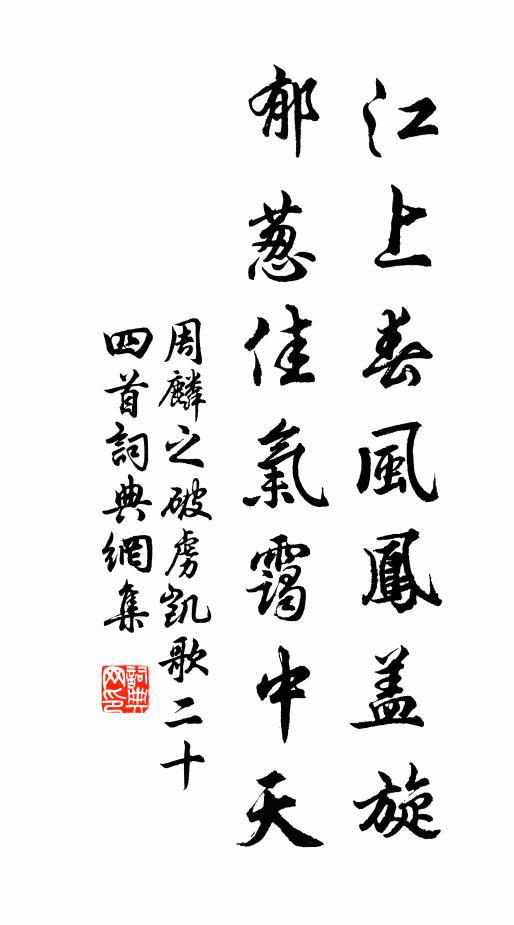 江上春風鳳盖旋
郁葱佳氣靄中天
周麟之破虜凱歌二十
四首詞典網集
詞典網印